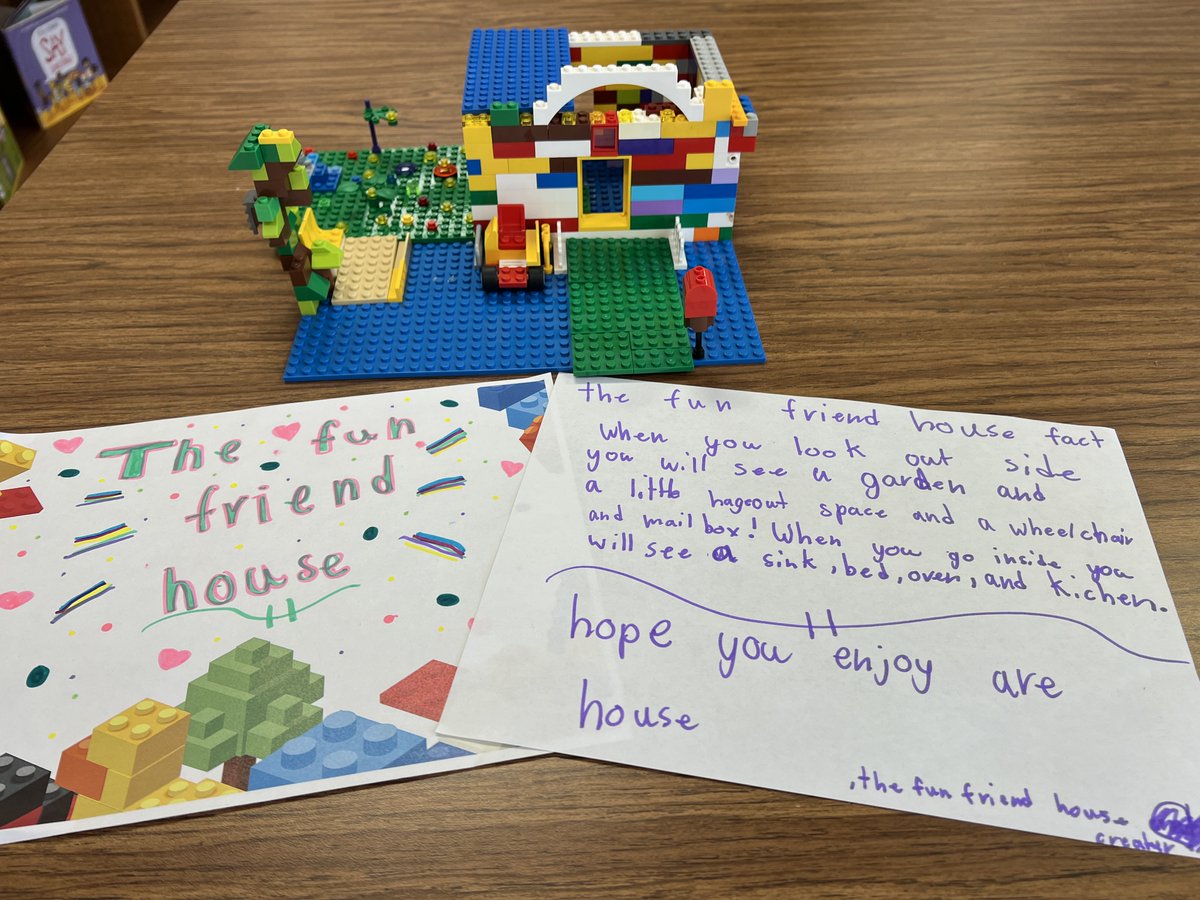 SAY
The fun
friend
house
the fun friend house fact
When you look out side
you will see a garden and
a little hageout space and a wheelchair
and mail box! When you go inside you
will see a sink, bed, oven, and Kichen.
hope you enjoy are
house
,the fun friend house
creater